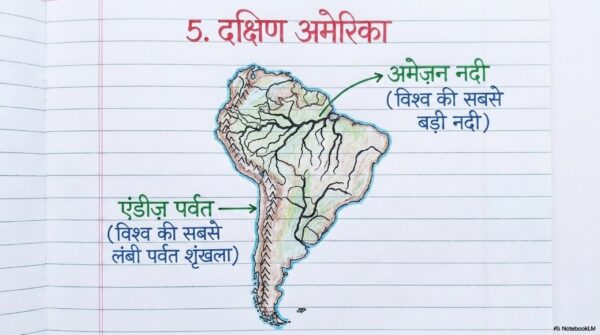 5. दक्षिण अमेरिका
अमेज़न नदी
(विश्व की सबसे
बड़ी नदी)
एंडीज़ पर्वत
(विश्व की सबसे
लंबी पर्वत शृंखला)
NotebookLM